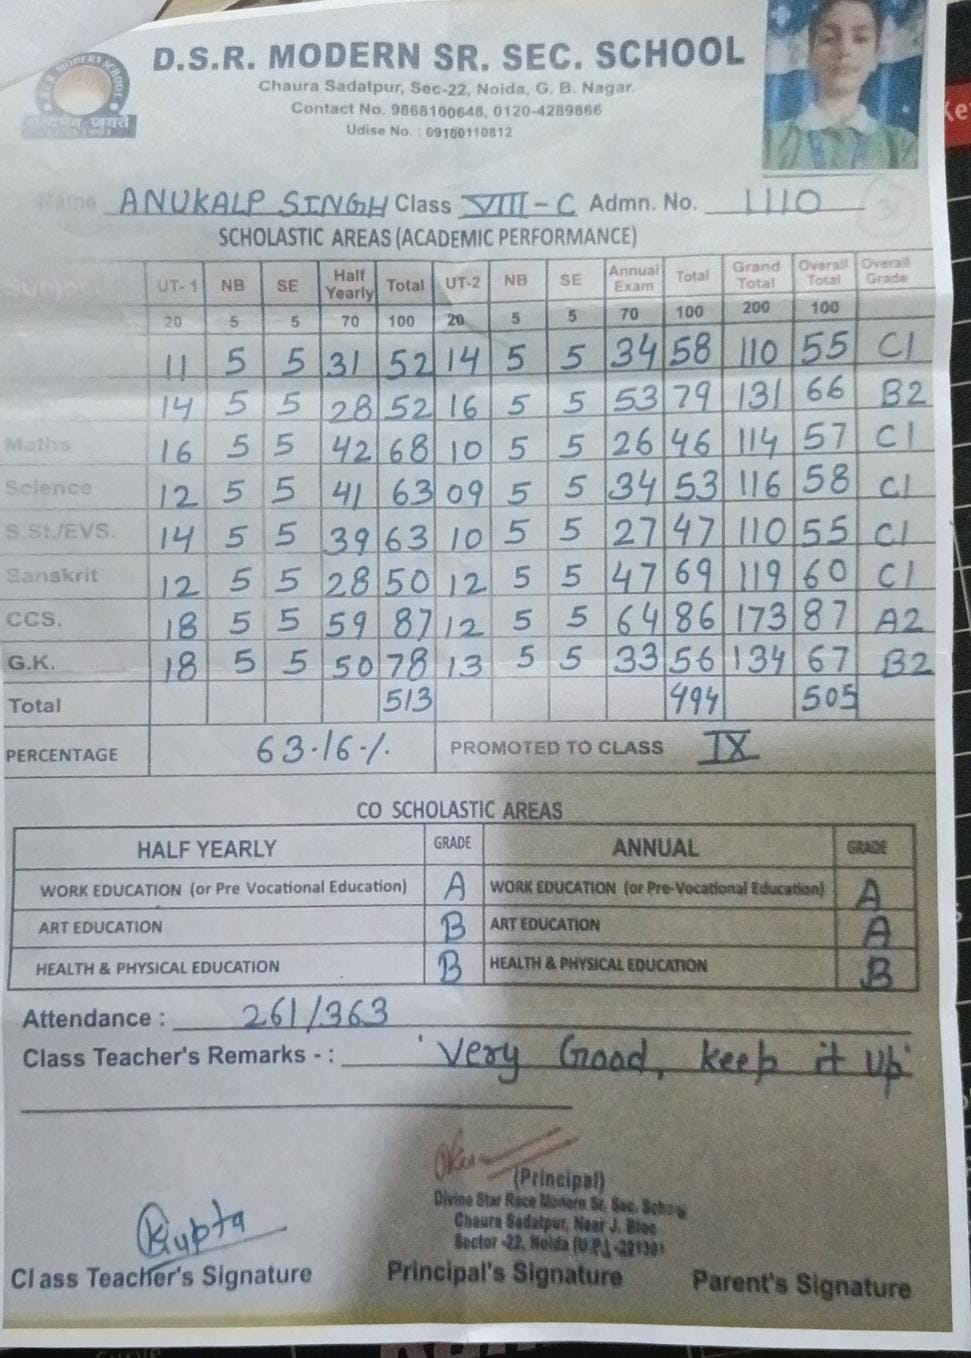 D.S.R. MODERN SR. SEC. SCHOOL
Chaura Sadatpur, Sec-22, Noida, G. B. Nagar.
Contact No. 9868100648, 0120-4289866
Udise No. : 09100110812
सत्यमेव जयते
Name ANUKALP SINGH Class VIII-C Admn. No. 1110 31
SCHOLASTIC AREAS (ACADEMIC PERFORMANCE)
UT-1 NB SE Half Yearly Total UT-2 NB SE Annual Exam Total Grand Total Overall Total Overall Grade
20 5 5 70 100 20 5 5 70 100 200 100
11 5 5 31 52 14 5 5 34 58 110 55 C1
14 5 5 28 52 16 5 5 53 79 131 66 B2
Maths 16 5 5 42 68 10 5 5 26 46 114 57 C1
Science 12 5 5 41 63 09 5 5 34 53 116 58 C1
S.St./EVS. 14 5 5 39 63 10 5 5 27 47 110 55 C1
Sanskrit 12 5 5 28 50 12 5 5 47 69 119 60 C1
CCS. 18 5 5 59 87 12 5 5 64 86 173 87 A2
G.K. 18 5 5 50 78 13 5 5 33 56 134 67 B2
Total 513 494 505
PERCENTAGE 63.16% PROMOTED TO CLASS IX
CO SCHOLASTIC AREAS
HALF YEARLY GRADE ANNUAL GRADE
WORK EDUCATION (or Pre Vocational Education) A WORK EDUCATION (or Pre-Vocational Education) A
ART EDUCATION B ART EDUCATION A
HEALTH & PHYSICAL EDUCATION B HEALTH & PHYSICAL EDUCATION B
Attendance : 261/363
Class Teacher's Remarks - : 'Very Good, keep it up'
(Principal)
Divine Star Race Modern Sr. Sec. School
Chaura Sadatpur, Near J. Bloc
Sector -22, Noida (U.P.)
Gupta
Class Teacher's Signature Principal's Signature Parent's Signature